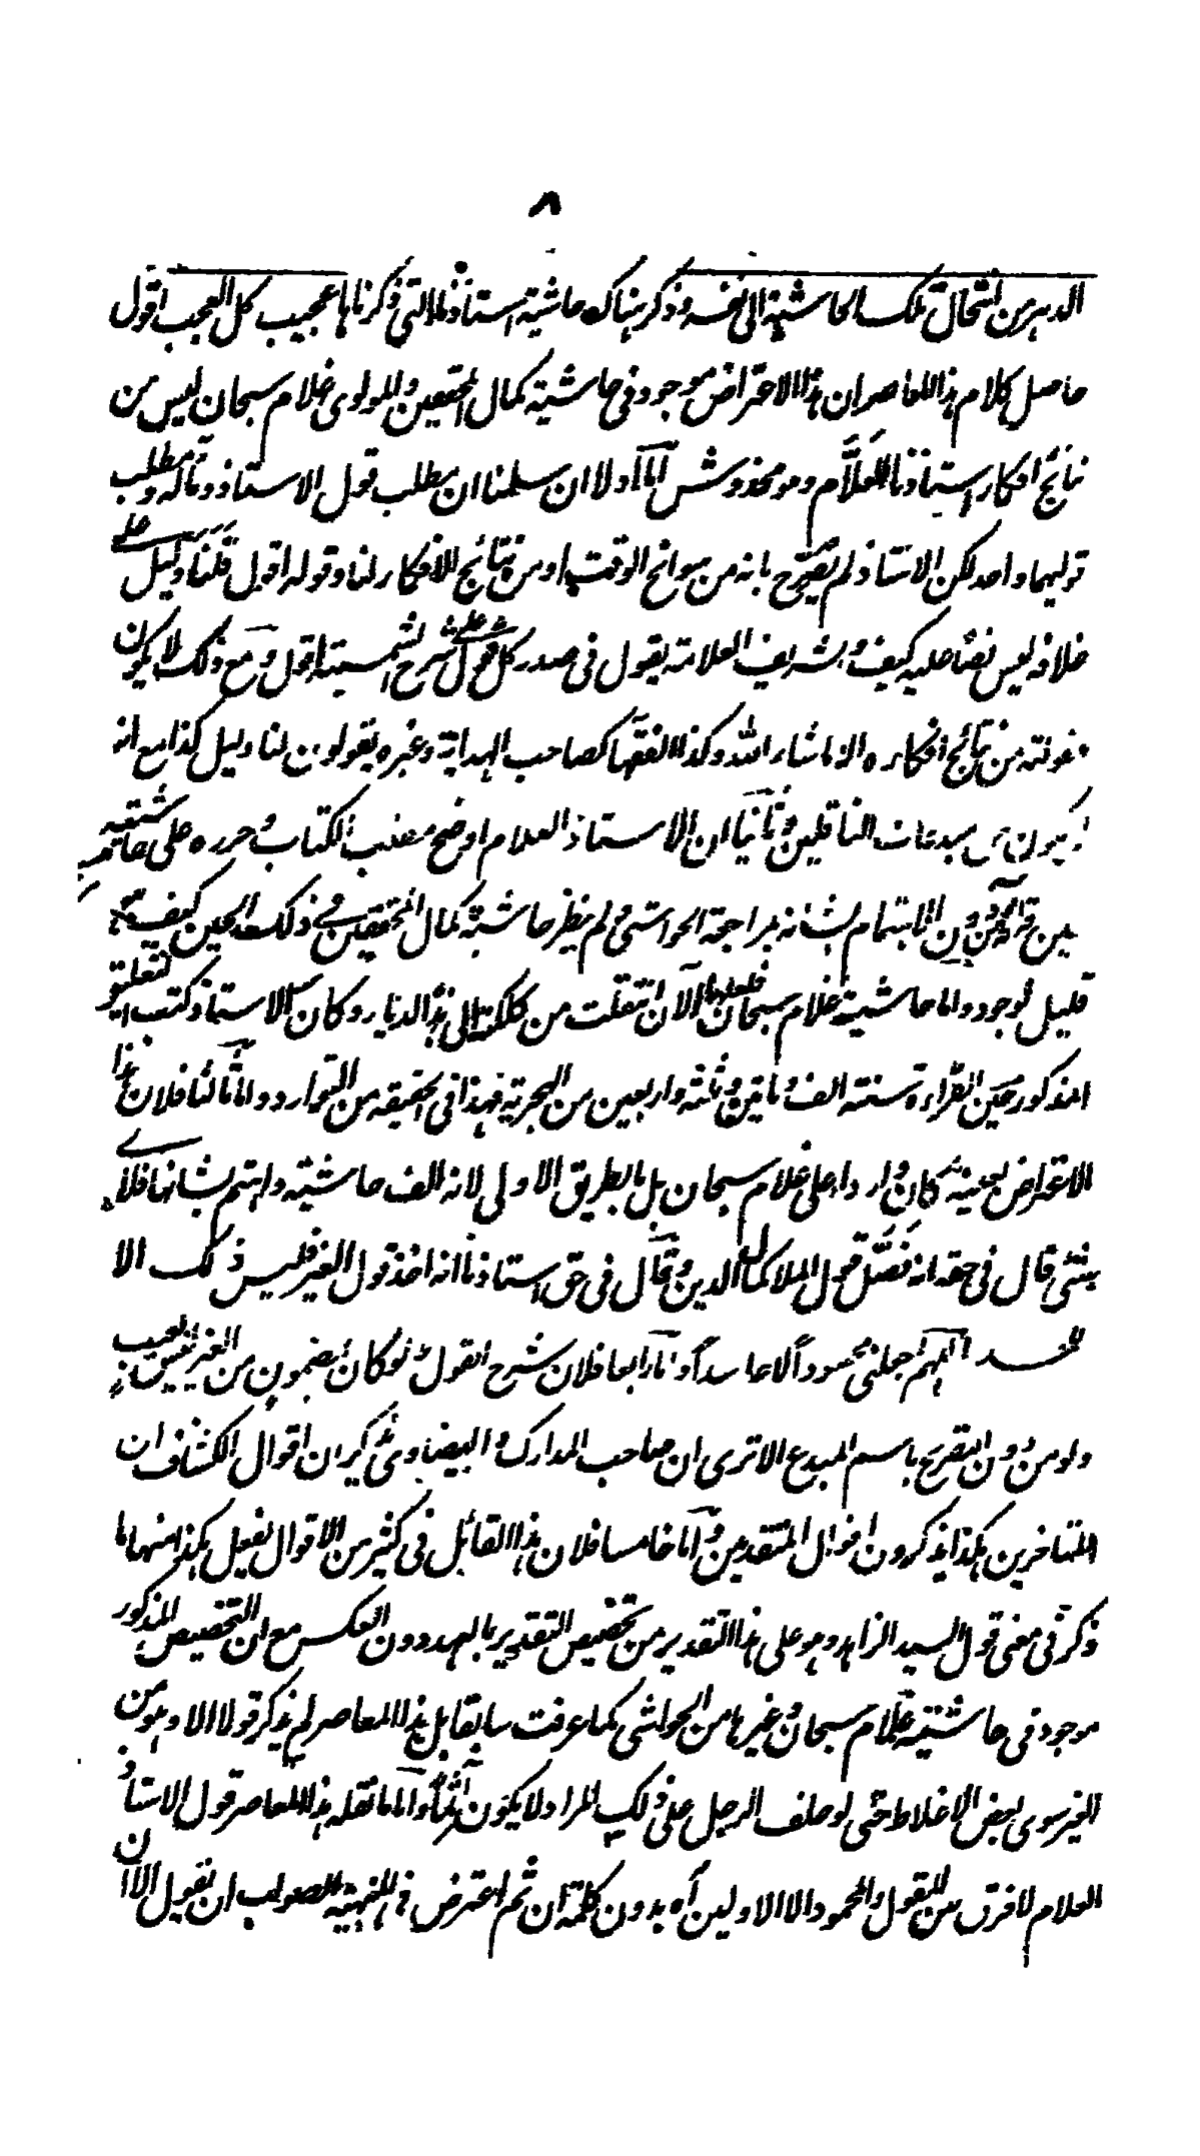 ٨
الدهر من انتحال تلك الحاشية الى نفسه وذكر هناك حاشية استاذنا التى ذكرناها عجيب كل العجب اقول
حاصل كلام هذا المعاصر ان هذا الاعتراض موجود فى حاشية كمال المحققين والمولوى غلام سبحان ليس من
نتائج افكار استاذنا العلام وهو مخدوش اما اولا ان سلمنا ان مطلب قول الاستاذ ومآله ومطلب
قوليهما واحد لكن الاستاذ لم يصرح بانه من سوانح الوقت او من نتائج الافكار لنا وقوله اقول قلنا دليل على
خلافه ليس نصا عليه كيف والشريف العلامة يقول فى صدر كل قول على شرح الشمسية اقول ومع ذلك لا يكون
مقولته من نتائج افكاره الا ما شاء الله وكذا الفقهاء كصاحب الهداية وغيره يقولون لنا دليل كذا مع انه
لا يكون من مبدعات الناقلين وثانيا ان الاستاذ العلام اوضح مغلب الكتاب وحرره على حاشيته
من دون الاهتمام بشانه بمراجعة الحواشى ولم ينظر حاشية كمال المحققين فى ذلك الحين كيف
قليل الوجود واما حاشية غلام سبحان فلعلها الآن انتقلت من كلكته الى هذا الديار وكان الاستاذ كتب التعليق
المذكور حين القراءة سنة الف ومائتين وثلثة واربعين من الهجرية فهذا فى الحقيقة من التوارد واما ثالثا فلان هذا
الاعتراض بعينه كان واردا على غلام سبحان بل بالطريق الاولى لانه الف حاشية واهتم بشانها فلاى
شئ قال فى حقه انه نقل قول الملا كمال الدين وقال فى حق استاذنا انه اخذ قول الغير فليس ذلك الا
للحسد اللهم اجعلنى محسودا لا حاسدا واما رابعا فلان شرح القول لو كان بمضمون من الغير ليس بعيب
ولو من دون التصريح باسم المبدع الا ترى ان صاحب المدارك والبيضاوى يذكران اقوال الكشاف ان
المتاخرين هكذا يذكرون اقوال المتقدمين واما خامسا فلان هذا القائل فى كثير من الاقوال يفعل هكذا منها ما
ذكر فى معنى قول السيد الزاهد وهو على هذا التقدير من تخصيص التقدير بالعهد دون العكس مع ان التخصيص المذكور
موجود فى حاشية غلام سبحان وغيرها من الحواشى كما عرفت سابقا بل هذا المعاصر لم يذكر قولا الا وهو من
الغير سوى بعض الاغلاط حتى لو حلف الرجل على ذلك المراد لا يكون آثما واما ما نقله هذا المعاصر قول الاستاذ
العلام لا فرق بين المقول والمحمود الا الاولين آه بدون كلمة ان ثم اعترض فى المنهية الصواب ان يقول الا ان